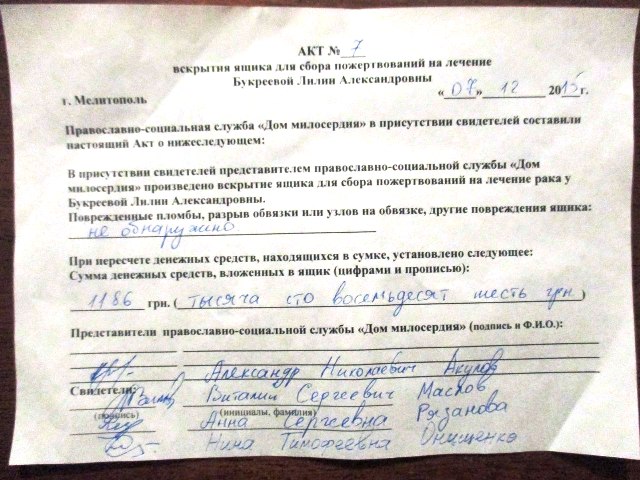 АКТ № 7
вскрытия ящика для сбора пожертвований на лечение
Букреевой Лилии Александровны
« 07 » 12 2015 г.
г. Мелитополь
Православно-социальная служба «Дом милосердия» в присутствии свидетелей составили
настоящий Акт о нижеследующем:
В присутствии свидетелей представителем православно-социальной службы «Дом
милосердия» произведено вскрытие ящика для сбора пожертвований на лечение рака у
Букреевой Лилии Александровны.
Поврежденные пломбы, разрыв обвязки или узлов на обвязке, другие повреждения ящика:
не обнаружино
При пересчете денежных средств, находящихся в сумке, установлено следующее:
Сумма денежных средств, вложенных в ящик (цифрами и прописью):
1186 грн. ( тысяча сто восемьдесят шесть грн )
Представители православно-социальной службы «Дом милосердия» (подпись и Ф.И.О.):
Александр Николаевич Акулов
Свидетели:
Виталий Сергеевич Маслов
(подпись) (инициалы, фамилия)
Анна Сергеевна Рязанова
Нина Тимофеевна Онищенко